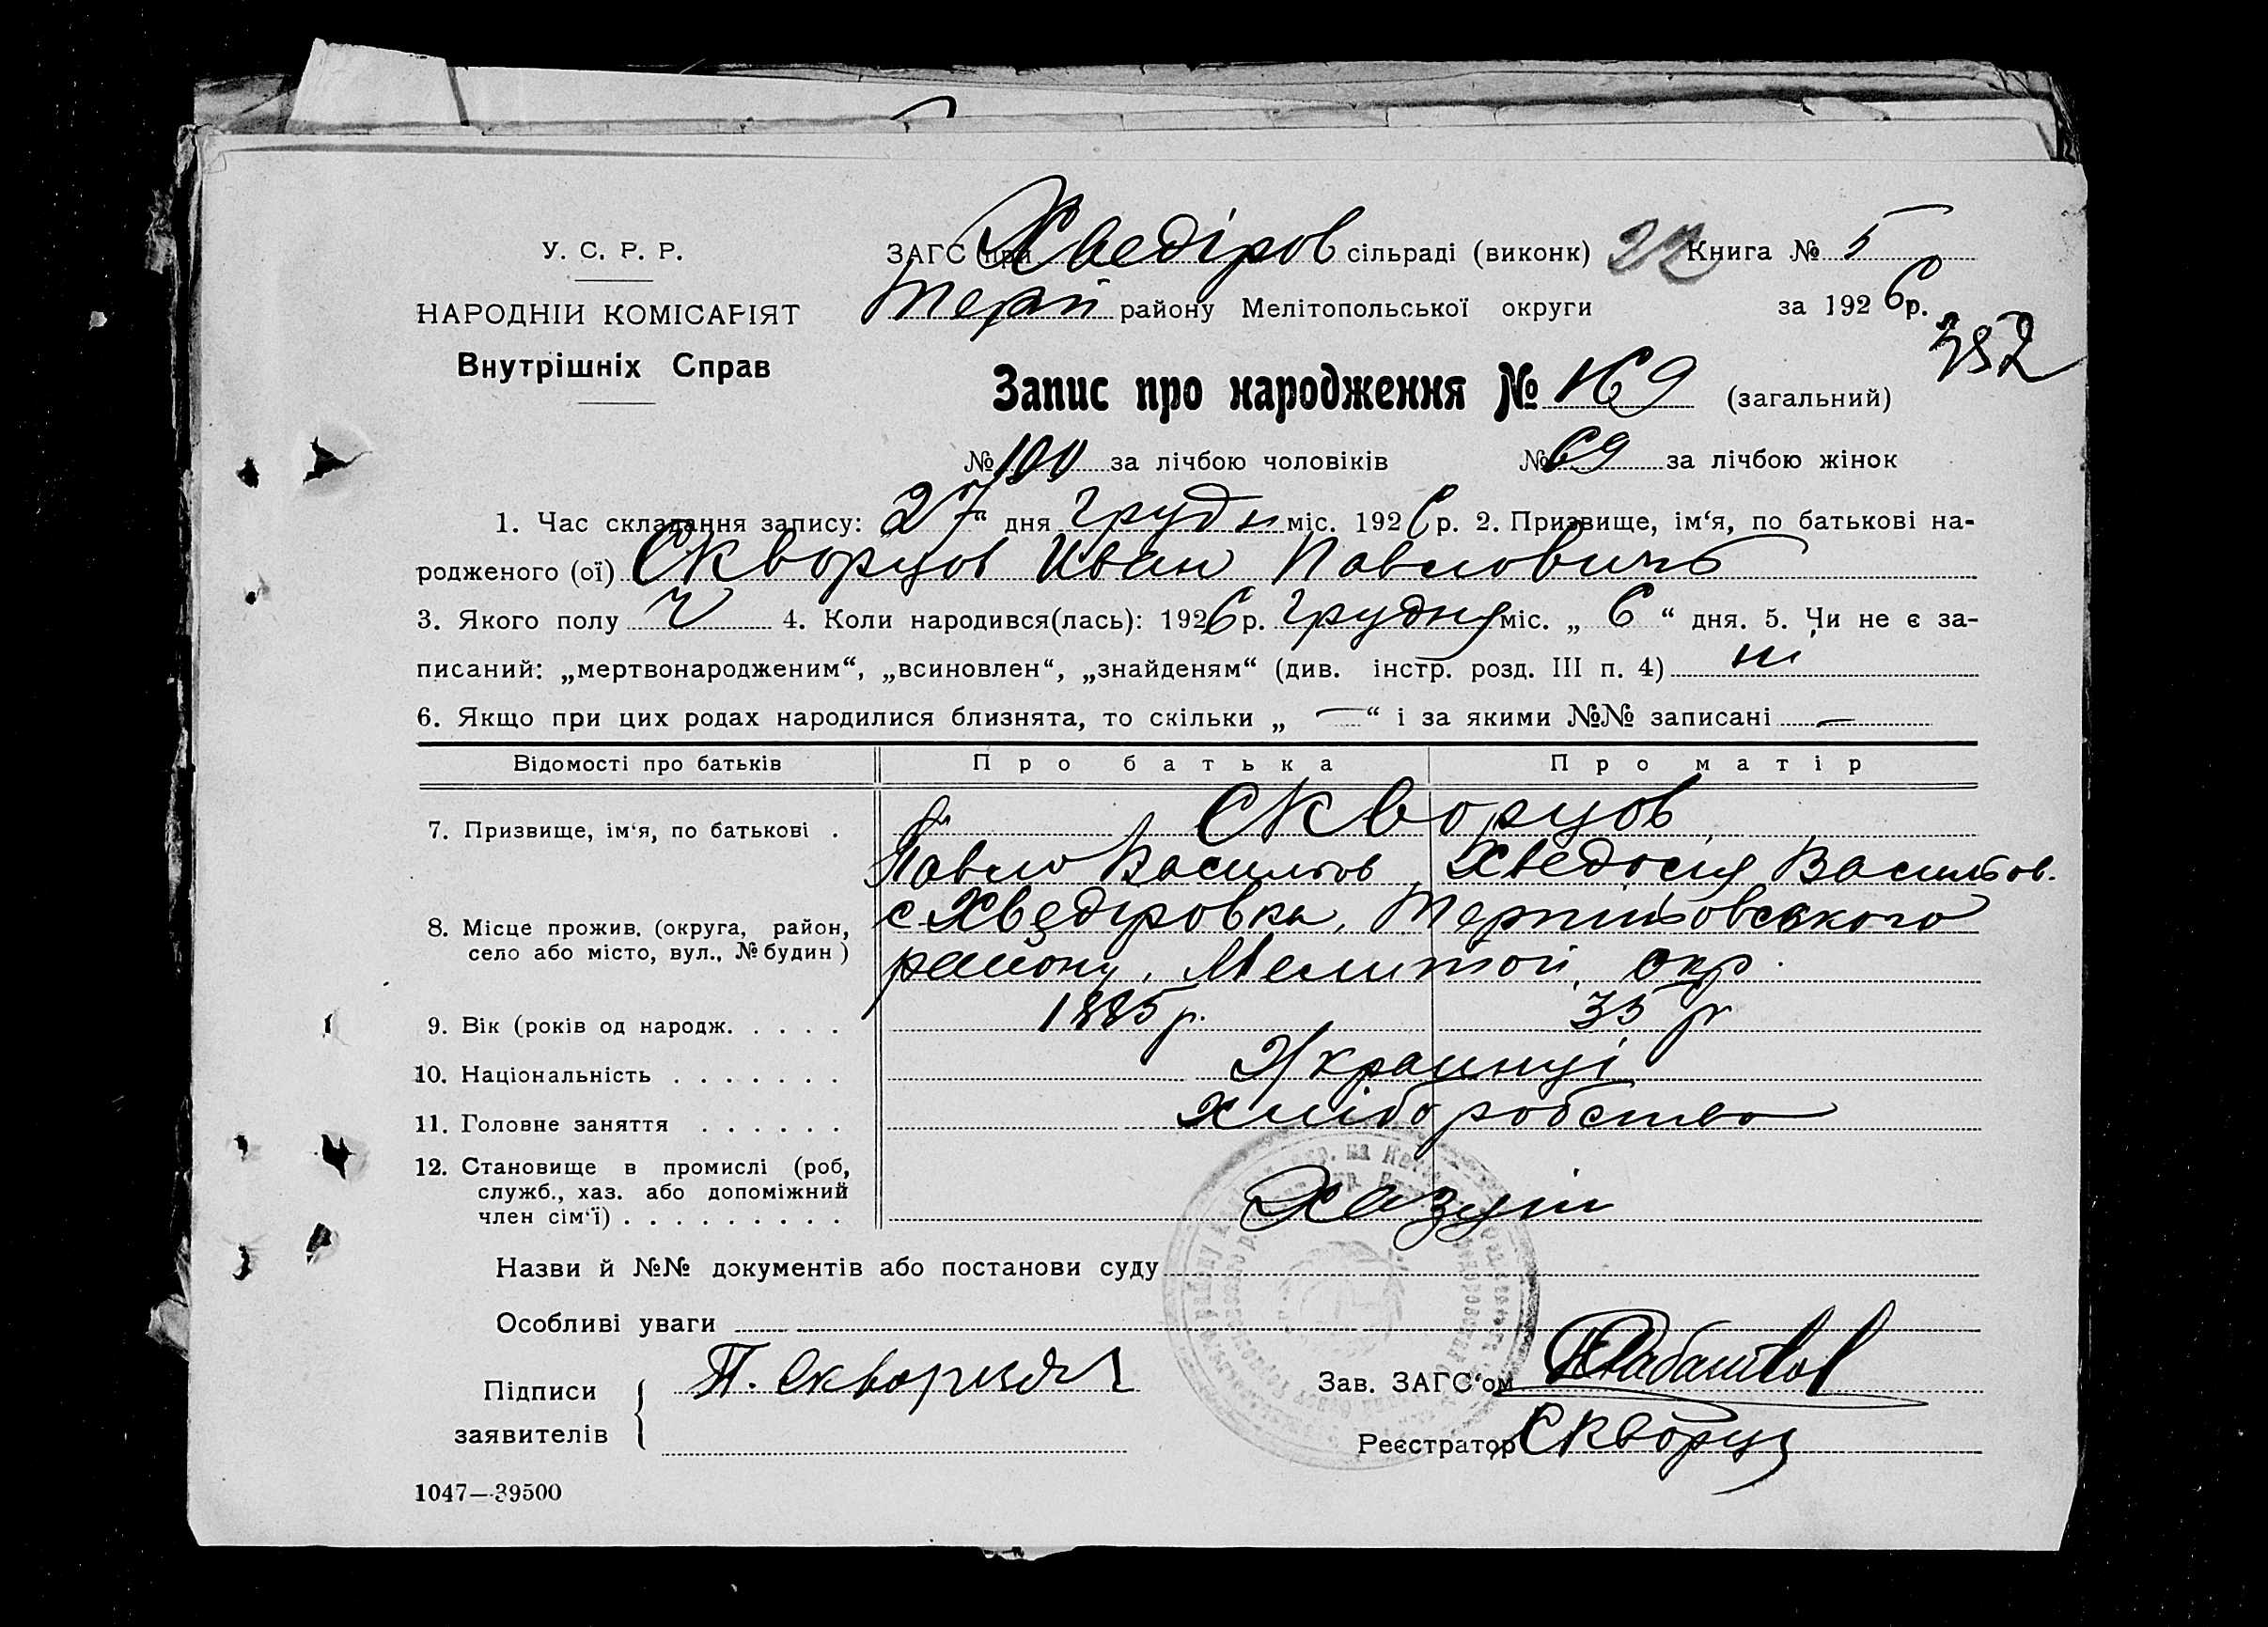 У. С. Р. Р.
НАРОДНІЙ КОМІСАРІЯТ
Внутрішніх Справ
ЗАГС при Хведіров сільраді (виконк) 22 Книга № 5
Терп району Мелітопольської округи за 1926 р.
352
Запис про народження № 169 (загальний)
№ 100 за лічбою чоловіків № 69 за лічбою жінок
1. Час складання запису: 27 “ дня Грудн міс. 1926 р. 2. Призвище, ім‘я, по батькові на-
родженого (ої) Скворцов Иван Павлович
3. Якого полу Ч 4. Коли народився(лась): 1926 р. Грудня міс. „ 6 “ дня. 5. Чи не є за-
писаний: „мертвонародженим“, „всиновлен“, „знайденям“ (див. інстр. розд. III п. 4) ні
6. Якщо при цих родах народилися близнята, то скільки „ — “ і за якими №№ записані —
Відомості про батьків Про батька Про матір
7. Призвище, ім‘я, по батькові . Скворцов
Павло Васильов Хведосія Васильов.
8. Місце прожив. (округа, район,
село або місто, вул., № будин )
с Хведіровка, Терпіньовського
району, Мелитоп окр.
9. Вік (років од народж. . . . . 1885 р. 35 р
10. Національність . . . . . . . Украинці
11. Головне заняття . . . . . . Хліборобство
12. Становище в промислі (роб,
служб., хаз. або допоміжний
член сім‘ї) . . . . . . . . . Хазуін
Назви й №№ документів або постанови суду
Особливі уваги
Підписи
заявителів
П. Скворцов
Зав. ЗАГС‘ом
Реєстратор Скворц
1047—39500